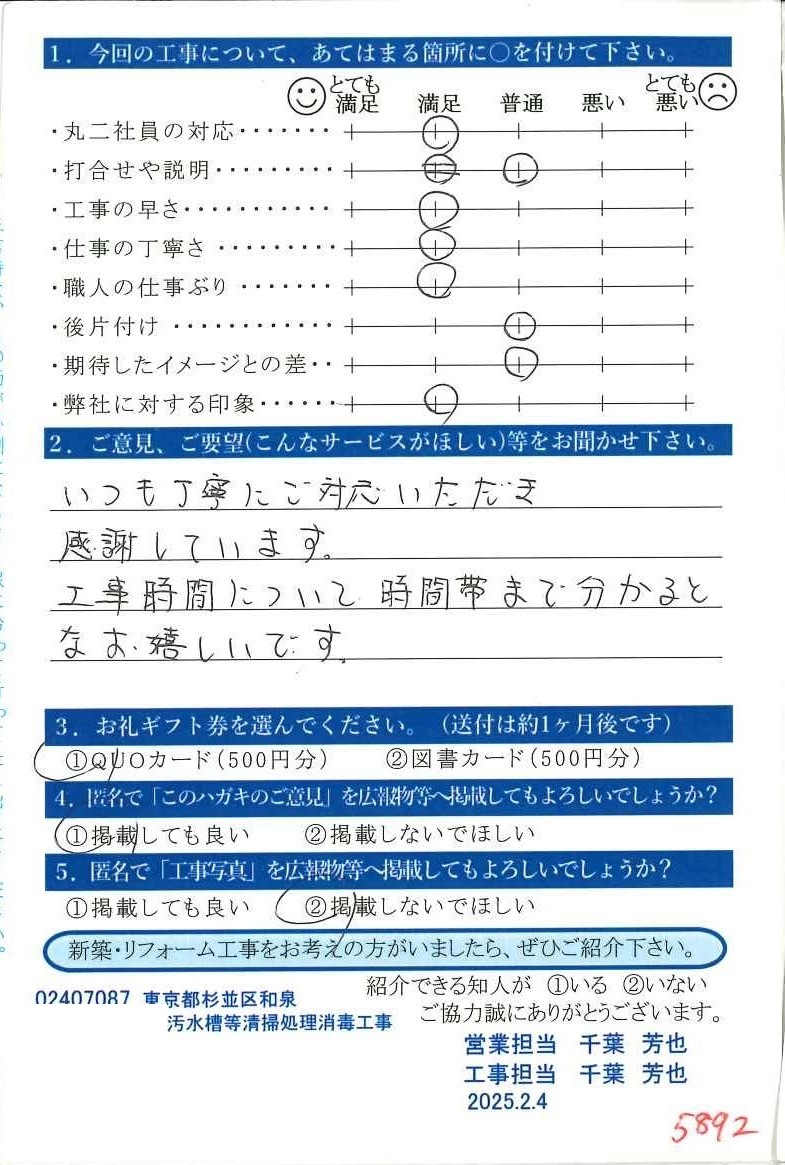 1．今回の工事について、あてはまる箇所に○を付けて下さい。
とても満足 満足 普通 悪い とても悪い
・丸二社員の対応・・・・・・・
・打合せや説明・・・・・・・・・
・工事の早さ・・・・・・・・・・・
・仕事の丁寧さ ・・・・・・・・・
・職人の仕事ぶり ・・・・・・・
・後片付け ・・・・・・・・・・・・
・期待したイメージとの差・・
・弊社に対する印象・・・・・・
2．ご意見、ご要望(こんなサービスがほしい)等をお聞かせ下さい。
いつも丁寧にご対応いただき
感謝しています。
工事時間について 時間帯まで分かると
なお嬉しいです。
3．お礼ギフト券を選んでください。（送付は約1ヶ月後です）
①QUOカード(500円分) ②図書カード(500円分)
4．匿名で「このハガキのご意見」を広報物等へ掲載してもよろしいでしょうか？
①掲載しても良い ②掲載しないでほしい
5．匿名で「工事写真」を広報物等へ掲載してもよろしいでしょうか？
①掲載しても良い ②掲載しないでほしい
新築・リフォーム工事をお考えの方がいましたら、ぜひご紹介下さい。
紹介できる知人が ①いる ②いない
02407087 東京都杉並区和泉
ご協力誠にありがとうございます。
汚水槽等清掃処理消毒工事
営業担当 千葉 芳也
工事担当 千葉 芳也
2025.2.4
5892